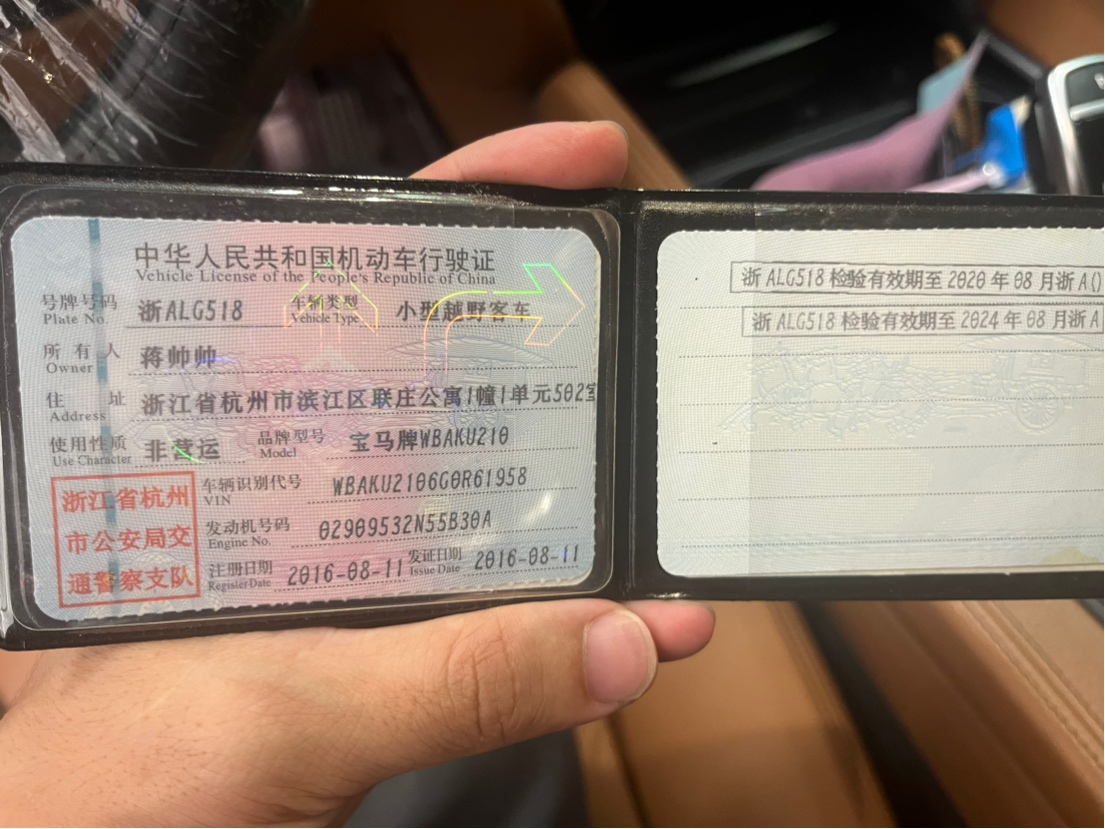 中华人民共和国机动车行驶证
Vehicle License of the People's Republic of China
号牌号码 浙ALG518 车辆类型 小型越野客车
Plate No. Vehicle Type
所有人 蒋帅帅
Owner
住址 浙江省杭州市滨江区联庄公寓1幢1单元502室
Address
使用性质 非营运 品牌型号 宝马牌WBAKU210
Use Character Model
浙江省杭州
市公安局交
通警察支队
车辆识别代号 WBAKU2106G0R61958
VIN
发动机号码 02909532N55B30A
Engine No.
注册日期 2016-08-11 发证日期 2016-08-11
Register Date Issue Date
浙ALG518 检验有效期至 2020 年 08 月浙A()
浙ALG518 检验有效期至 2024 年 08 月浙A